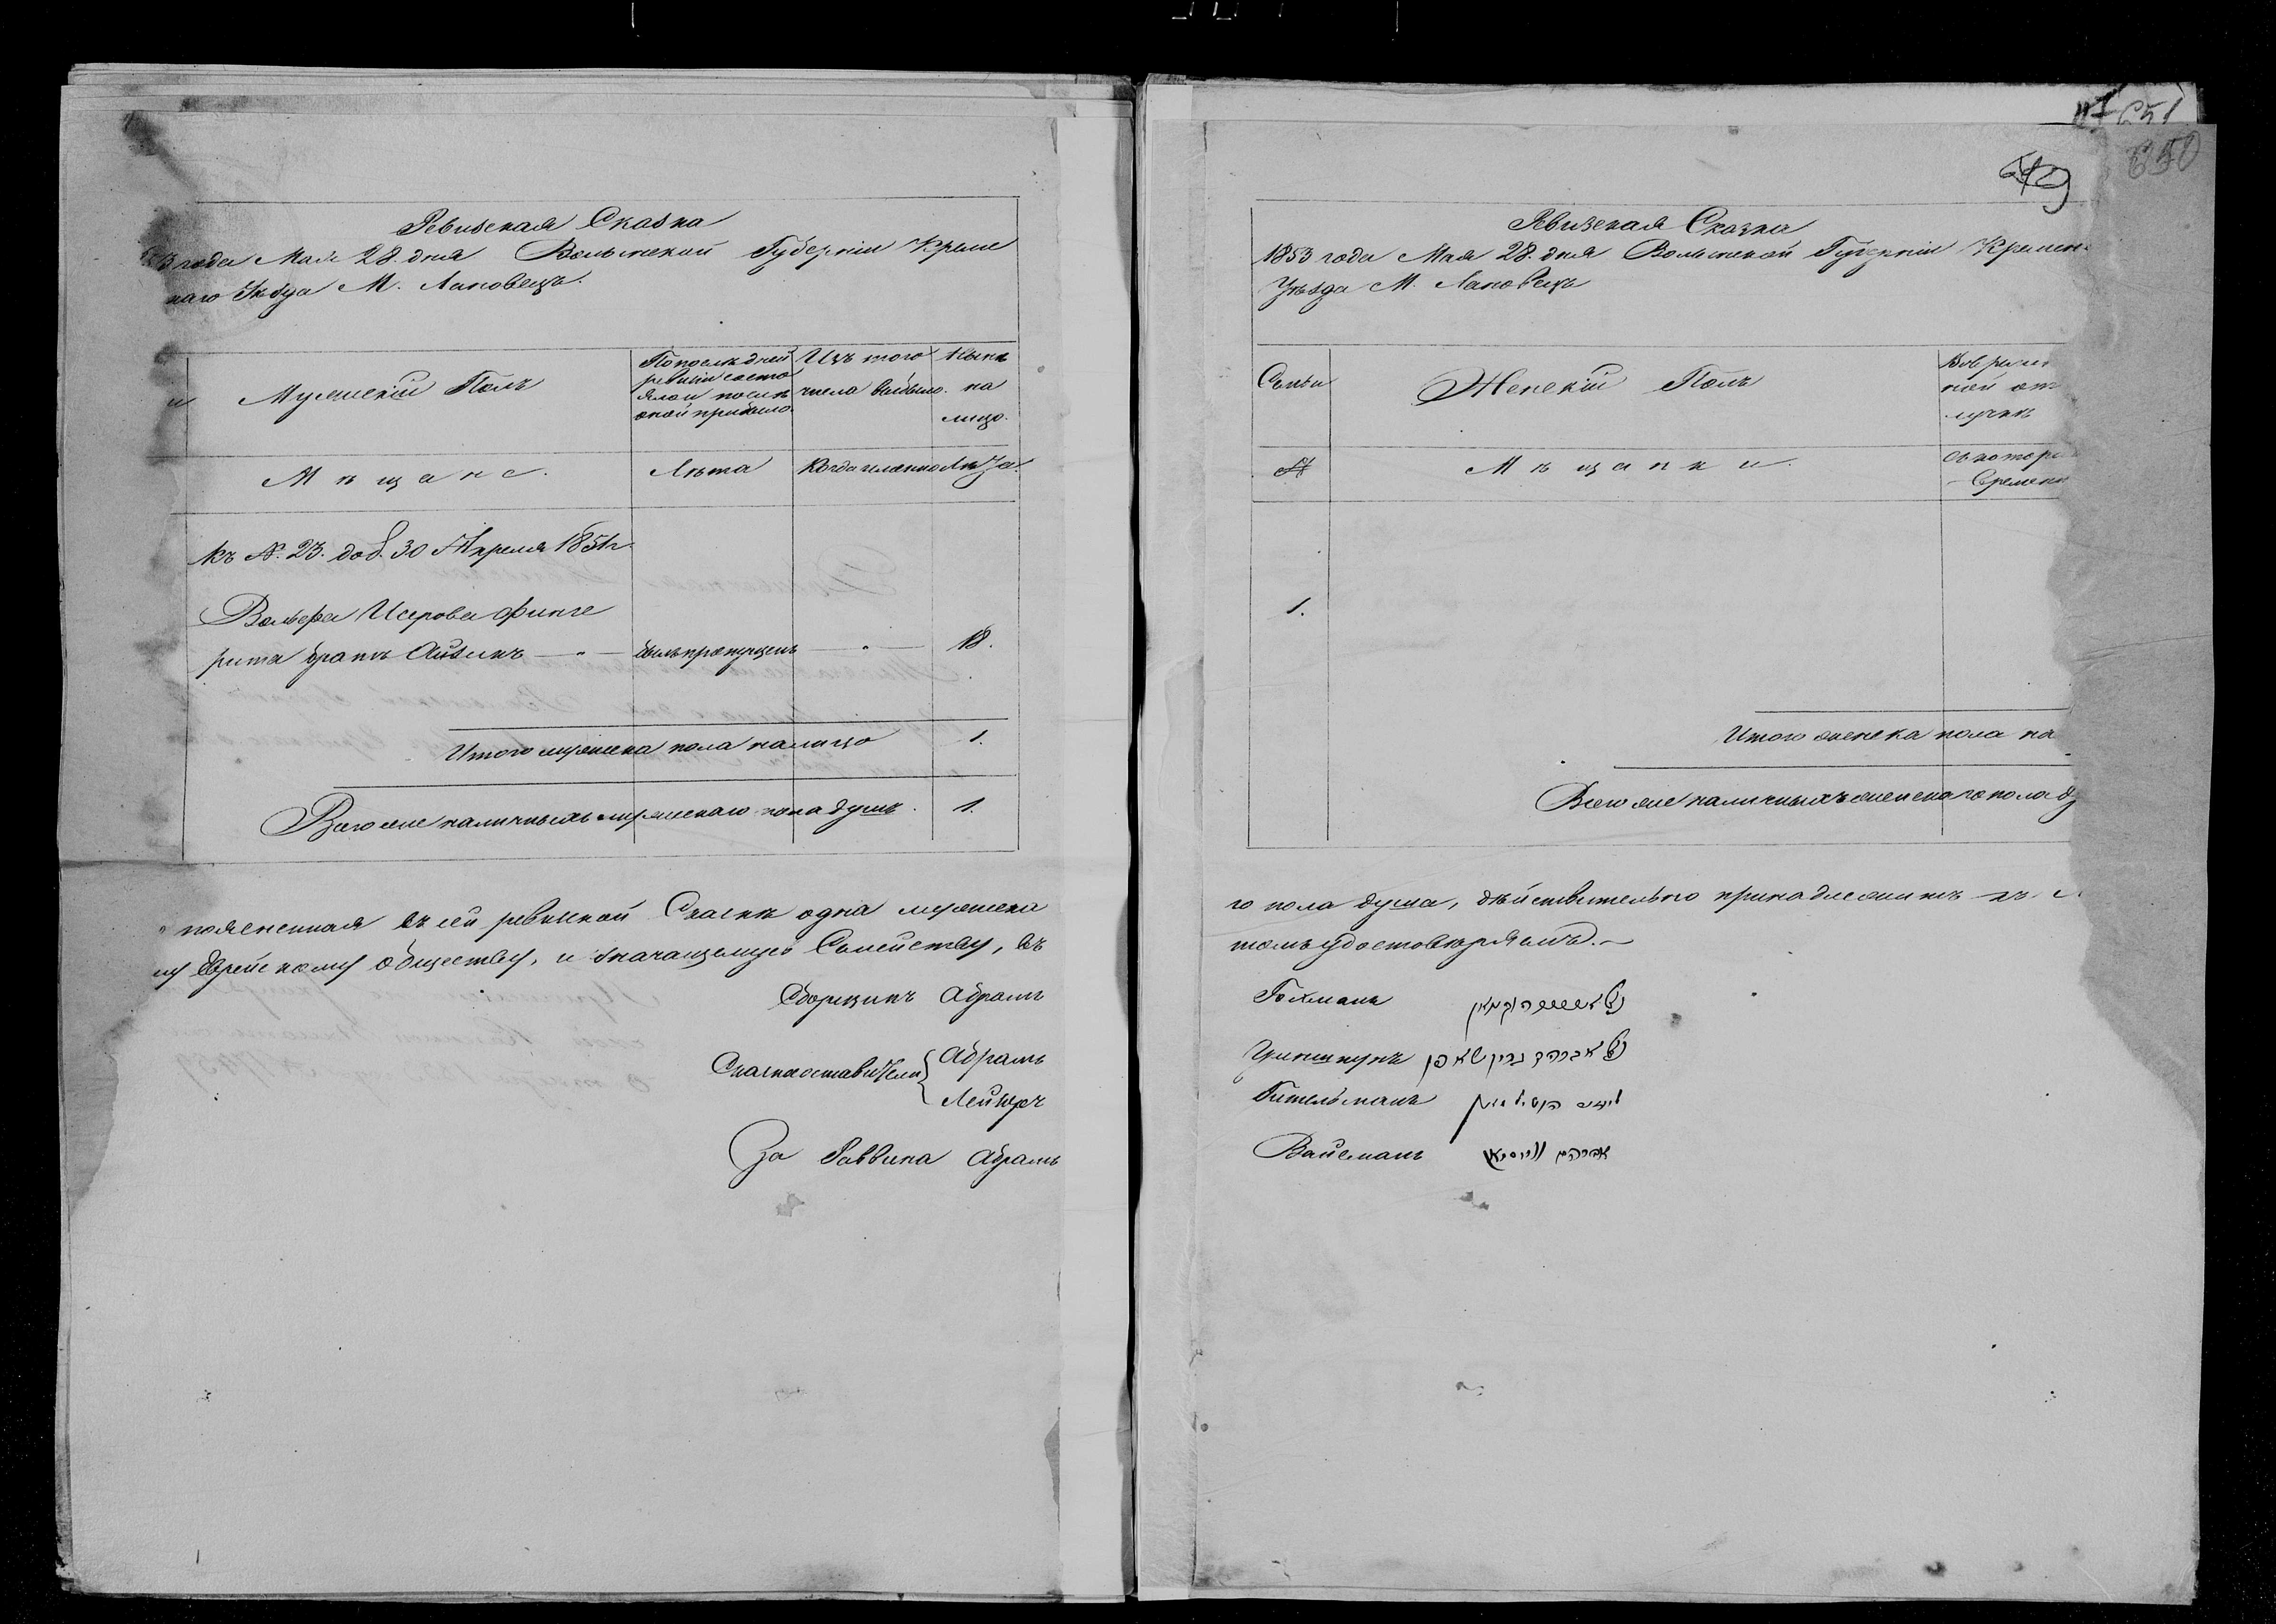 Ревизская Сказка
года Мая 28. дня Волынской Губерніи Креме
наго Уѣзда М. Лановецъ.
Мужескій Полъ
По послѣдней
ревизіи состо
яло и послѣ
оной прибыло.
Изъ того
числа выбыло.
Нынѣ
на
лицо.
Мѣщане.
Лѣта
Когда именно
Лѣта.
Къ №. 23. доб. 30 Апреля 1851 г.
Вольфа Исерова Финге
рита братъ Айзикъ — „ — былъ пропущенъ — „ — 18.
Итого мужеска пола налицо 1.
Всего же наличныхъ мужескаго пола душъ. 1.
поясненная въ сей ревизкой Сказкѣ одна мужеска
му Еврейскому обществу, и значащемуся Семейству, въ
Сборщикъ Абрамъ
Сказкосоставители Абрамъ
Лейзоръ
За Раввина Абрамъ
651
650
49
Ревизская Сказка
1853 года Мая 28. дня Волынской Губерніи Кремен
Уѣзда М. Лановецъ
Семьи
Женскій Полъ
Во времен
ной от
лучкѣ
№
Мѣщанки.
Съ котора
Времени
1.
Итого женска пола на
Всего же наличныхъ женскаго пола ду
го пола душа, дѣйствительно принадлежитъ къ
томъ удостовѣряемъ.—
Гохманъ
Гринштунъ
Гительманъ
Вайсманъ אברהם ווייסמאן